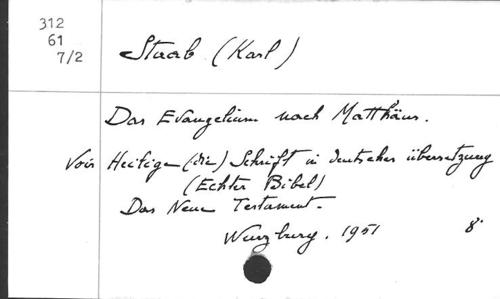 312
61
7/2
Staab (Karl)
Das Evangelium nach Matthäus.
Voir Heilige (die) Schrift in deutscher übersetzung
(Echter Bibel)
Das Neue Testament.
Wurzburg. 1951 8°